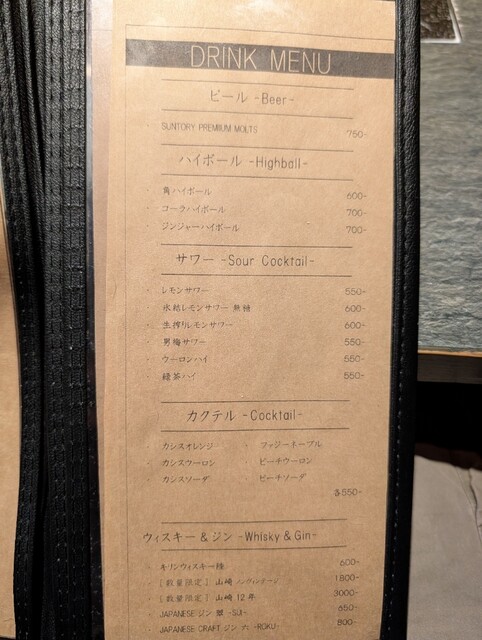 DRINK MENU
ビール -Beer-
・ SUNTORY PREMIUM MOLTS 750-
ハイボール -Highball-
・ 角ハイボール 600-
・ コーラハイボール 700-
・ ジンジャーハイボール 700-
サワー -Sour Cocktail-
・ レモンサワー 550-
・ 氷結レモンサワー 無糖 600-
・ 生搾りレモンサワー 600-
・ 男梅サワー 550-
・ ウーロンハイ 550-
・ 緑茶ハイ 550-
カクテル -Cocktail-
・ カシスオレンジ ・ ファジーネーブル
・ カシスウーロン ・ ピーチウーロン
・ カシスソーダ ・ ピーチソーダ
各550-
ウィスキー & ジン -Whisky & Gin-
・ キリンウィスキー陸 600-
・ [数量限定] 山崎 ノンヴィンテージ 1800-
・ [数量限定] 山崎 12年 3000-
・ JAPANESE ジン 翠 -SUI- 650-
・ JAPANESE CRAFT ジン 六 -ROKU- 800-